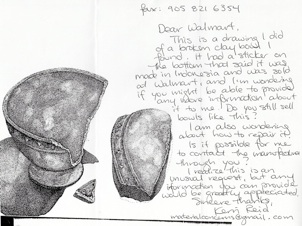 fax: 905 821 6354
Dear Walmart,
This is a drawing I did
of a broken clay bowl I
found. It had a sticker on
the bottom that said it was
made in Indonesia and was sold
at Walmart, and I'm wondering
if you might be able to provide
any more information about
it to me. Do you still sell
bowls like this?
I am also wondering
about how to repair it.
Is it possible for me
to contact the manufacturer
through you?
I realize this is an
unusual request, but any
information you can provide
would be greatly appreciated.
Sincere thanks,
Kerri Reid